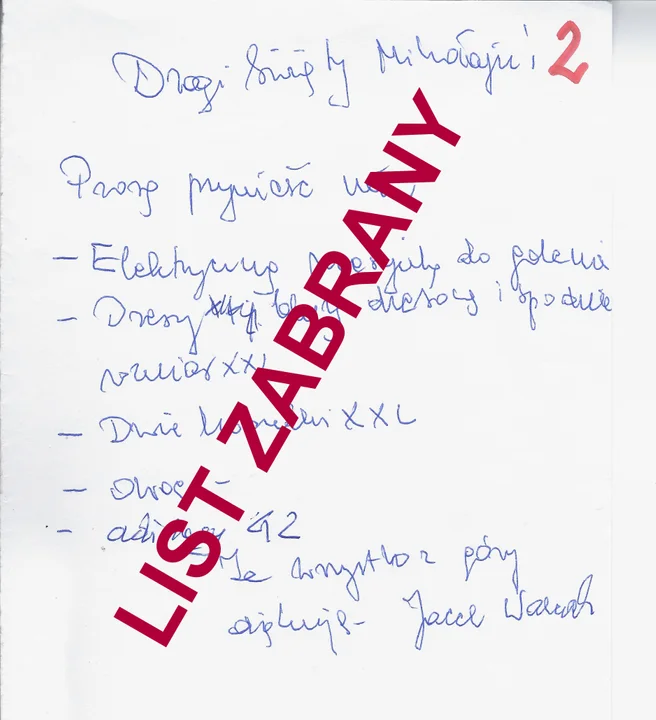 Drogi Święty Mikołaju! 2
Proszę przynieść
- Elektryczną do golenia
- Dresy bluzę dresową i spodnie
rozmiar XXL
- Dwie XXL
- owoce
- adidasy 42
Za wszystko z góry
dziękuję - Jacek
LIST ZABRANY